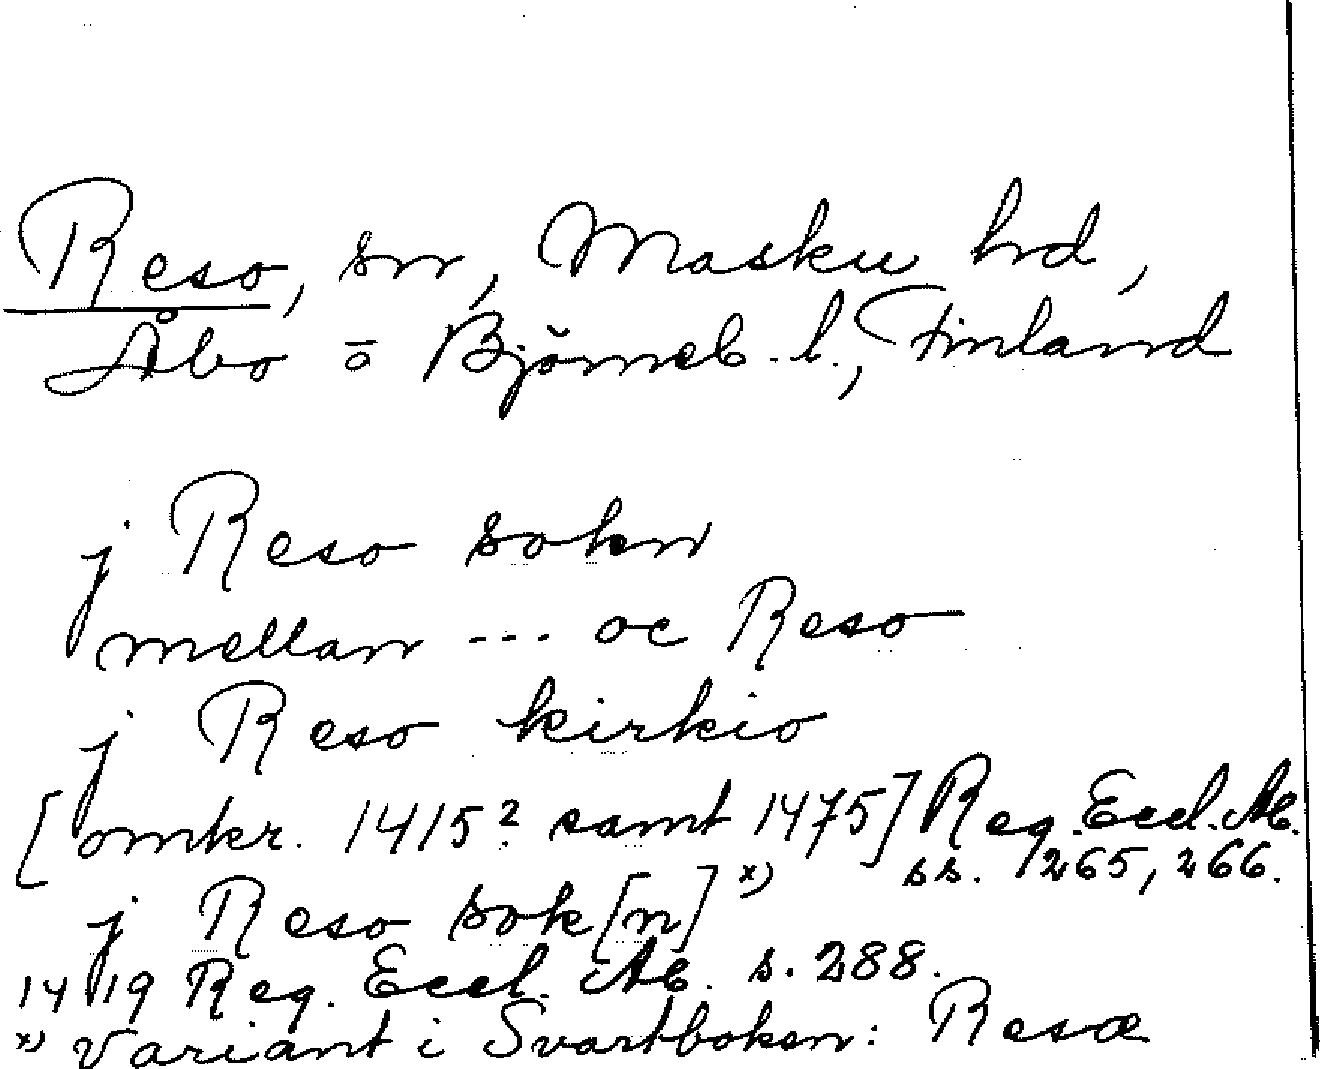 Reso, sn, Masku hd,
Åbo o Björneb. l., Finland
j Reso sokn
mellan --- oc Reso
j Reso kirkio
[omkr. 1415? samt 1475] Reg. Eccl. Ab.
ss. 265, 266.
j Reso sok[n] x)
1419 Reg. Eccl. Ab. s. 288.
x) Variant i Svartboken: Resæ